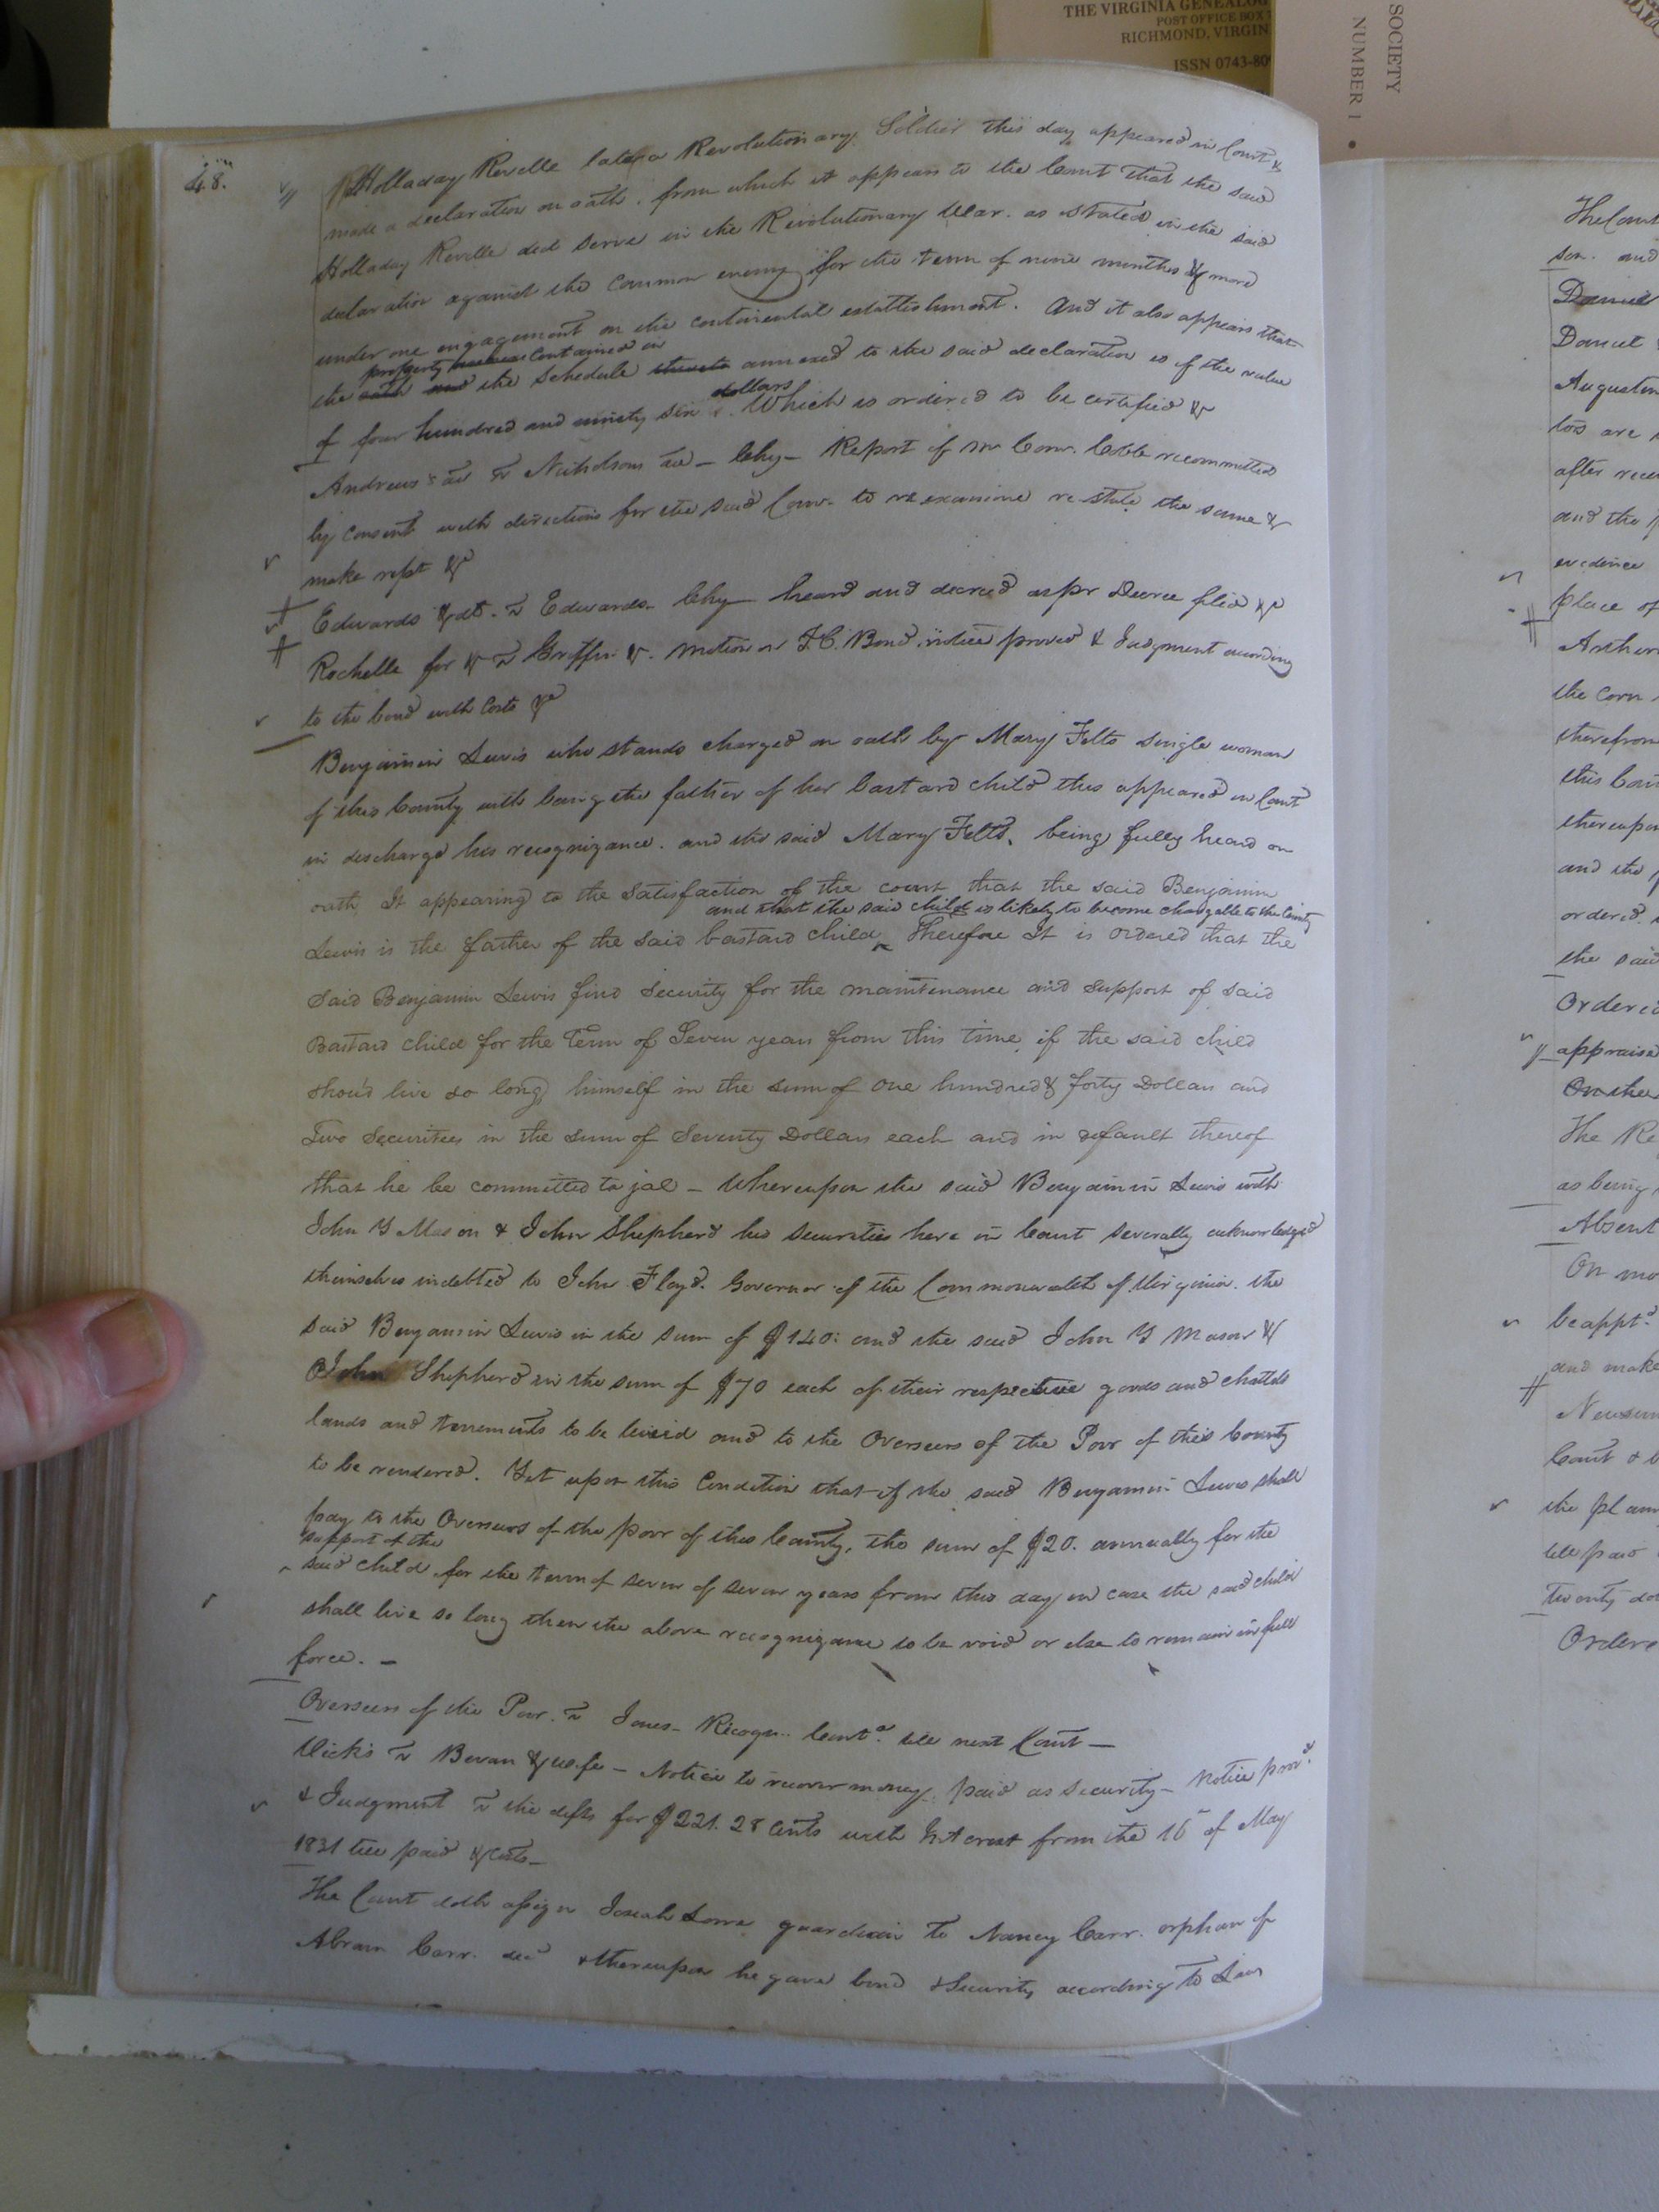 THE VIRGINIA GENEALOG
POST OFFICE BOX
RICHMOND, VIRGIN
ISSN 0743-80
SOCIETY
NUMBER 1
48.
Holladay Revelle late a Revolutionary Soldier this day appeared in Court &
made a declaration on oath. from which it appears to the Court that the said
Holladay Revelle did serve in the Revolutionary War. as stated in the said
declaration against the Common enemy for the term of nine months & more
under one engagement on the continental establishment. And it also appears that
property contained in
the oath and the schedule thereto annexed to the said declaration is of the value
dollars
of four hundred and ninety six . Which is ordered to be certified &
Andrews & als vs Nicholson &c - Chy - Report of Mr Comr. Cobb recommitted
by consent with directions for the said Comr. to re examine re state the same &
make rept &c
Edwards & als. vs Edwards - Chy - heard and decreed as pr Decree filed &c
Rochelle for & vs Griffin &. motion on F.C. Bond. notice proved & Judgment according
to the bond with Costs &c
Benjamin Lewis who stands charged on oath by Mary Felts single woman
of this County with being the father of her bastard child this appeared in Court
in discharge his recognizance. and the said Mary Felts, being fully heard on
oath, It appearing to the Satisfaction of the court that the said Benjamin
and that the said child is likely to become chargable to the County
Lewis is the father of the said bastard child ^ Therefore It is ordered that the
said Benjamin Lewis find security for the maintenance and support of said
Bastard child for the Term of Seven years from this time, if the said child
should live so long, himself in the sum of One hundred & forty Dollars and
Two Securities in the sum of Seventy Dollars each and in default thereof
that he be committed to jal - Whereupon the said Benjamin Lewis with
John Y Mason & John Shepherd his securities here in Court severally acknowledged
themselves indebted to John Floyd. Governor of the Commonwealth of Virginia. the
said Benjamin Lewis in the sum of $140: and the said John Y Mason &
John Shepherd in the sum of $70 each of their respective goods and chattels
lands and tenements to be levied and to the Overseers of the Poor of this County
to be rendered. Yet upon this Condition that if the said Benjamin Lewis shall
pay to the Overseers of the poor of this County, the sum of $20. annually for the
support of the
^ said child for the term of seven of seven years from this day in case the said child
shall live so long then the above recognizance to be void or else to remain in full
force. -
Overseers of the Poor. vs Jones - Recogn.. Contd. till next Court -
Vicks vs Bevan & wife - Notice to recover money paid as security - Notice provd.
& Judgment vs the defts for $221. 28 Cents with Interest from the 16 of May
1831 till paid & costs -
The Court doth assign guardian to Nancy Carr. orphan of
Abram Carr. decd & thereupon he gave bond & Security according to Law
The Court
son. and
Daniel
Daniel
Augustin
tors are
after
and the
evidence
place of
the corn
therefrom
this Cou
thereupon
and the
ordered.
the said
Ordered
appraise
On the
The Re
as being
Absent
On mo
be apptd
and make
Newsum
Court &
the plain
till paid
twenty do
Ordere